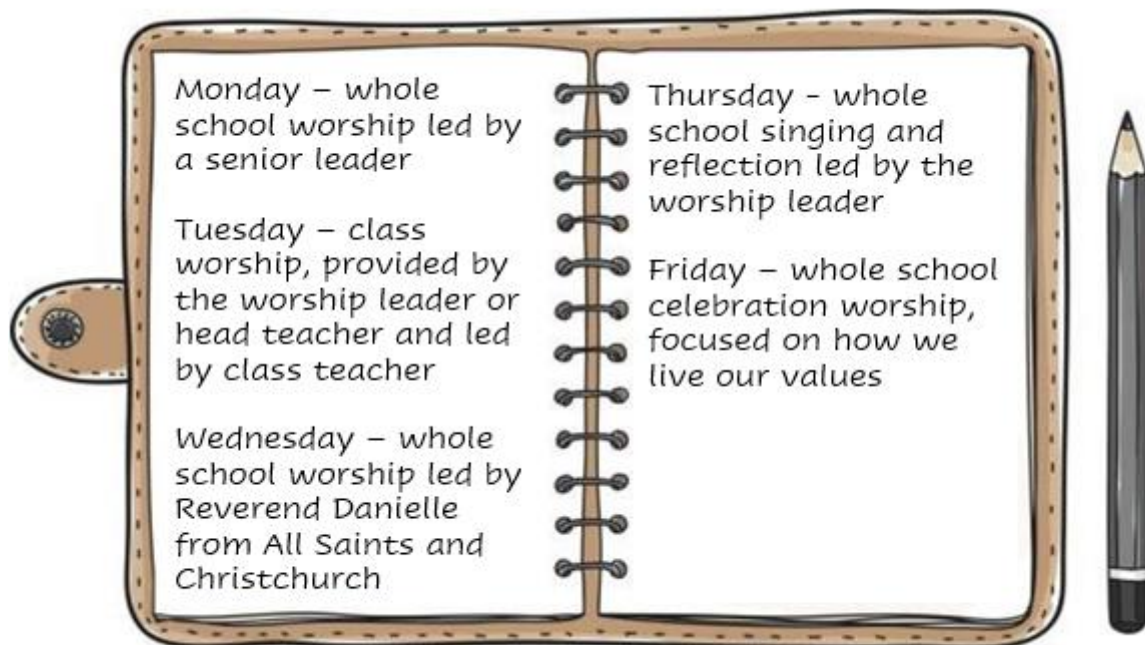 Monday – whole
school worship led by
a senior leader
Tuesday – class
worship, provided by
the worship leader or
head teacher and led
by class teacher
Wednesday – whole
school worship led by
Reverend Danielle
from All Saints and
Christchurch
Thursday - whole
school singing and
reflection led by the
worship leader
Friday – whole school
celebration worship,
focused on how we
live our values